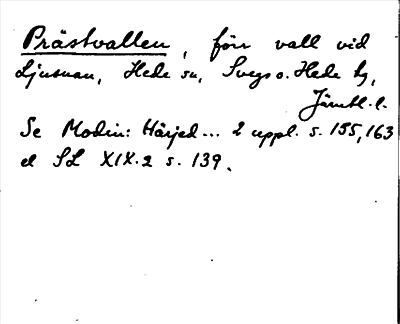 Prästvallen, förr vall vid
Ljusnan, Hede sn, Svegs o. Hede tg,
Jämtl. l.
Se Modin: Härjed... 2 uppl. s. 155, 163
el SL XIX.2 s. 139.